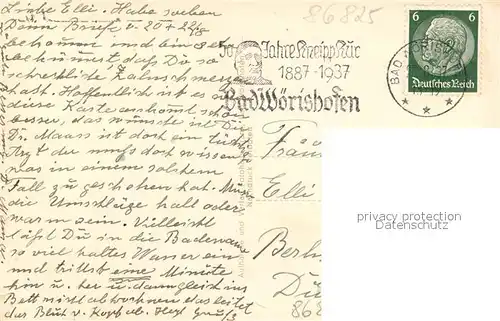 Liebe Elli. Habe soeben
Deine Briefe v. 20 + 22/8
bekommen und bin sehr
bekümmert daß Du so
schreckliche Zahnschmerzen
hast. Hoffentlich ist es wenn
diese Karte ankommt schon
besser, das wünsche ist Dir
Dr. Maass ist doch ein tücht.
Arzt der muss doch wissen
was in einem solchem
Fall zu geschehen hat. Muss
die Umschläge kalt oder
warm sein. Vielleicht
läßt Du in die Badewanne
so viel kaltes Wasser ein
und trittst eine Minute
hin u. her u. dann gleich ins
Bett nicht abtrocknen das leitet
das Blut v. Kopf ab. Herzl Gruß
86825
50 Jahre Kneipp Kur
1887-1937
Bad Wörishofen
6 6
Deutsches Reich
BAD WÖRISHOFEN
Fräu
Elli
Berli
privacy protection
Datenschutz